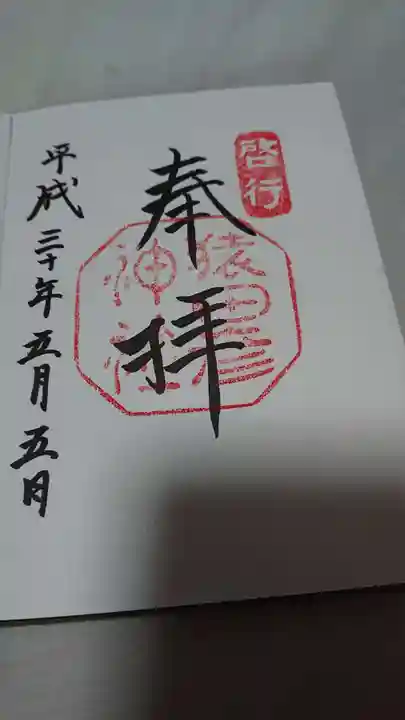 啓行
奉拝
猿田彦
神社
平成三十年五月五日